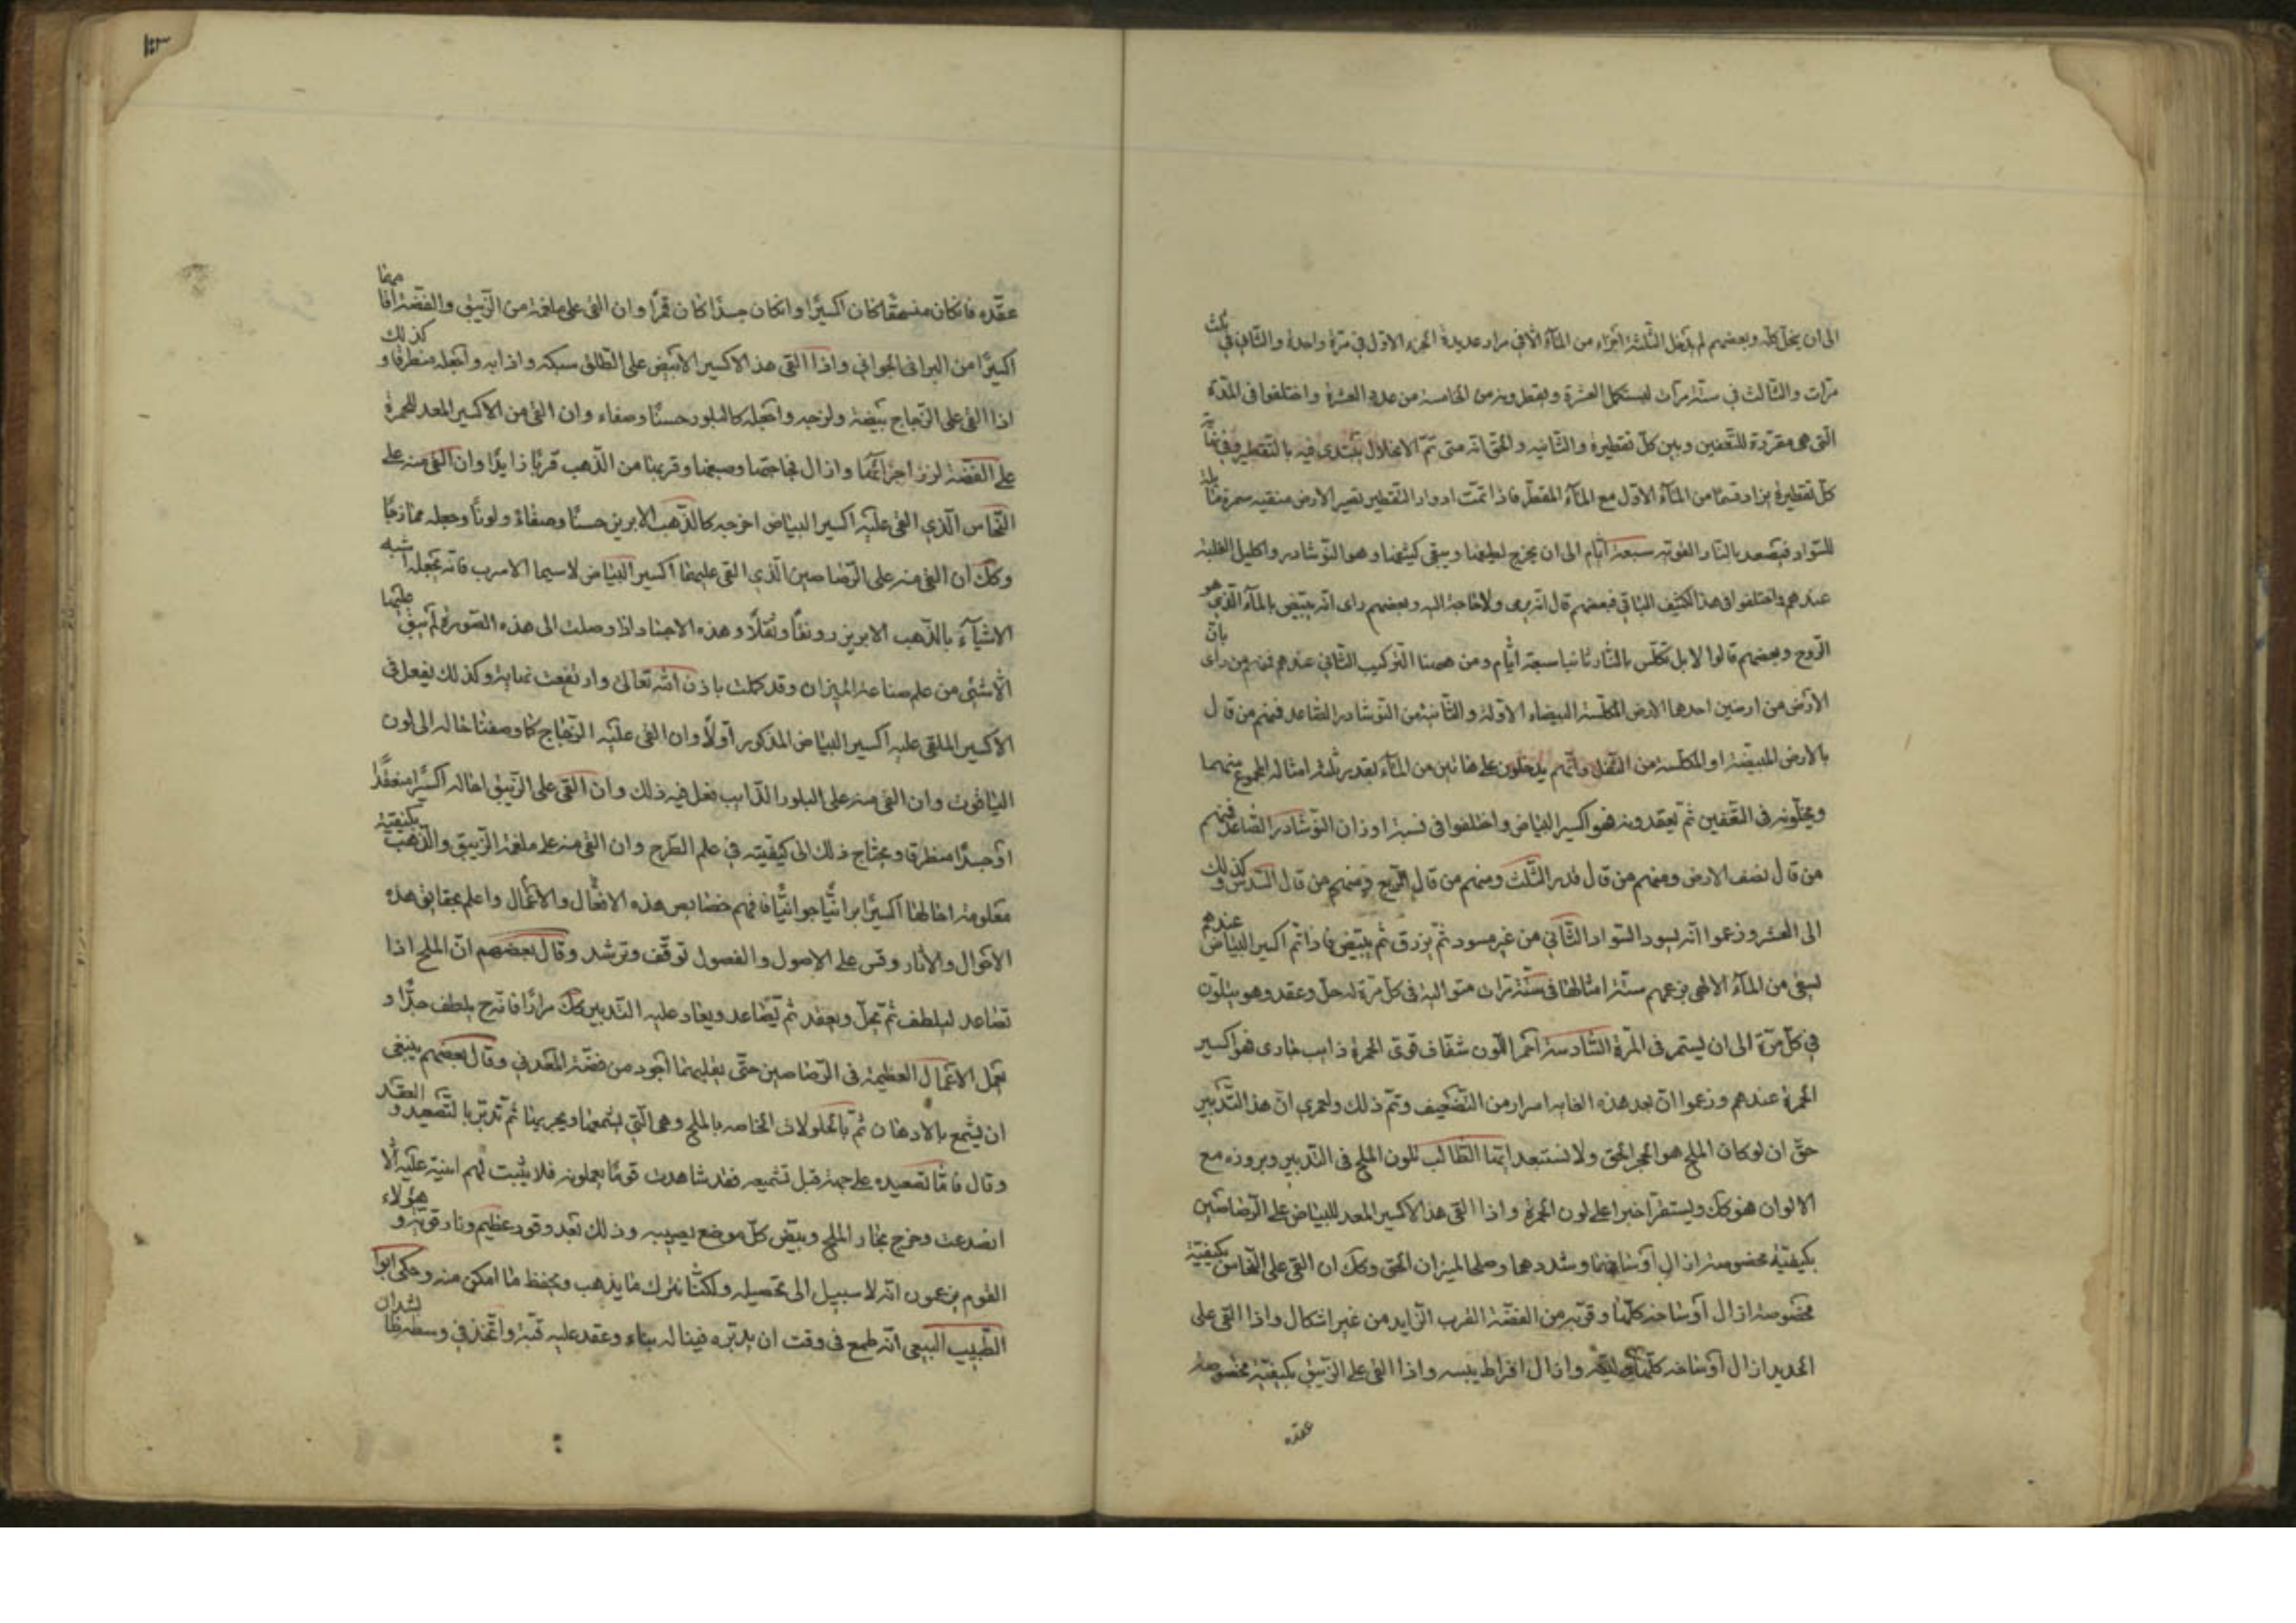 الى ان ينحل كله وبعضهم لم يدخل الثلثة اجزاء من الماء الا في مرار عديدة الجزء الاول في مرة واحدة والثاني في ثلث
مرات والثالث في ستة مرات ليستكمل العشرة ويقطرونه من الخامسة من عدد العشرة واختلفوا في المدة
التى هى مقررة للتعفين وبين كل تقطيرة والثانيه والحق انه متى تم الانحلال يبتدى فيه بالتقطير وفى
كل تقطيرة يزاد قسما من الماء الاول مع الماء المقطر فاذا تمت ادوار التقطير تصير الارض منقيه سمرة
للسواد فيصعد بالنار القوته سبعة ايام الى ان يخرج لطيفها ويبقى كثيفها وهو النوشادر واكليل الغلبة
عندهم واختلفوا فى هذا الكثيف الباقي فبعضهم قال انه يرمى ولا حاجة اليه وبعضهم راى انه يبيض بالماء الذى هو
الروح وبعضهم قالوا لا بل تكلس بالنار ثانيا سبعة ايام ومن ههنا التركيب الثاني عندهم فمنهم من راى بان
الارض من ارضين احدهما الارض المكلسة البيضاء الاولة والثانية من النوشادر الصاعد فمنهم من قال
بالارض المبيضة او المكلسة من الثفل وانهم يدخلون على هاتين من الماء بقدر ثلثة امثاله المجموع منهما
ويحلونه فى التعفين ثم يعقدونه فهو اكسير البياض واختلفوا فى نسبة اوزان النوشادر الصاعد فمنهم
من قال نصف الارض ومنهم من قال قدر الثلث ومنهم من قال الربع ومنهم من قال السدس وكذلك
الى العشر وزعموا انه يسود السواد الثاني من غير مسود ثم يزرق ثم يبيض فاذا تم اكسير البياض عندهم
يسقى من الماء الالهى بزعمهم ستة امثالها فى ستة مرات متوالية فى كل مرة له حل وعقد وهو يتلون
في كل مرة الى ان يستمر فى المرة السادسة احمر اللون شفاف قوى الحمرة ذايب جارى فهو اكسير
الحمرة عندهم وزعموا ان بعد هذه الغايه اسرار من التضعيف وتم ذلك ولعمرى ان هذا التدبير
حق ان لو كان الملح هو الحجر الحق ولا نستبعد ايها الطالب تلون الملح فى التدبير وبروزه مع
الالوان فهو كك ويستقر اخيرا على لون الحمرة واذا القى هذا الاكسير المعد للبياض على الرصاصين
بكيفية مخصوصة ازال اوساخهما وشددهما وصلحا لميزان الحق وكك ان القى على النحاس بكيفية
مخصوصة ازال اوساخه كلها وقربه من الفضة القرب الزايد من غير اشكال واذا القى على
الحديد ازال اوساخه كلها ولينه وازال افراط يبسه واذا القى على الزيبق بكيفية مخصوصة
عقده
عقده فان كان منسحقا كان اكسيرا وان كان جسدا كان قمرا وان القى على ملغمة من الزيبق والفضة اقامها
اكسيرا من البرانى الجواني واذا القى هذا الاكسير الابيض على الطلق سبكه واذابه واجعله منطرقا وكذلك
اذا القى على الزجاج بيضه ولزجه واجعله كالبلور حسنا وصفاء وان القى من الاكسير المعد للحمرة
على الفضة لزز اجزائها وازال فجاجتها وصبغها وقربها من الذهب قربا زايدا وان القى منه على
النحاس الذي القى عليه اكسير البياض اخرجه كالذهب الابريز حسنا وصفاة ولونا وجعله ممازجا
وكك ان القى منه على الرصاصين الذي القى عليهما اكسير البياض لاسيما الاسرب فانه تجعله اشبه
الاشياء بالذهب الابريز رونقا وثقلا وهذه الاجساد اذا وصلت الى هذه الصورة لم يبق عليها
الا شئى من علم صناعة الميزان وقد كملت باذن الله تعالى وارتفعت نهاية وكذلك يفعل فى
الاكسير الملقى عليه اكسير البياض المذكور اولا وان القى عليه الزجاج كما وصفنا احاله الى لون
الياقوت وان القى منه على البلور الذايب فعل فيه ذلك وان القى على الزيبق احاله اكسيرا منعقدا
او جسدا منطرقا ويحتاج ذلك الى كيفيته في علم الطرح وان القى منه على ملغمة الزيبق والذهب بكيفية
معلومة احالها اكسيرا برانيا جوانيا فافهم خصايص هذه الافعال والاعمال واعلم بحقايق هذه
الاحوال والاثار وقس على الاصول والفصول توقف وترشد وقال بعضهم ان الملح اذا
تصاعد ليلطف ثم تحل ويعقد ثم يصاعد ويعاد عليه التدبير كك مرارا فانه ح يلطف جدا و
يعمل الاعمال العظيمة فى الرصاصين حتى يقلبهما اجود من فضة المعدني وقال بعضهم ينبغى
ان يشمع بالادهان ثم بالمحلولات الخاصه بالملح وهى التي يشمعها ويجريها ثم تدبر بالتصعيد والعقد
وقال فاما تصعيده على جهة قبل تشميعه فقد شاهدت قوما يعملونه فلا يثبت لهم انية عليه الا
انصدعت وخرج بخار الملح وبيض كل موضع يصيبه وذلك بعد وقود عظيم ونار قوية وهؤلاء
القوم يزعمون انه لا سبيل الى تحصيله ولكنا نترك ما يذهب ويحفظ ما امكن منه وحكى ابوا
الطبيب البيعى انه طمع فى وقت ان يدبره فبنا له بناء وعقد عليه قبة واتخذ في وسطه